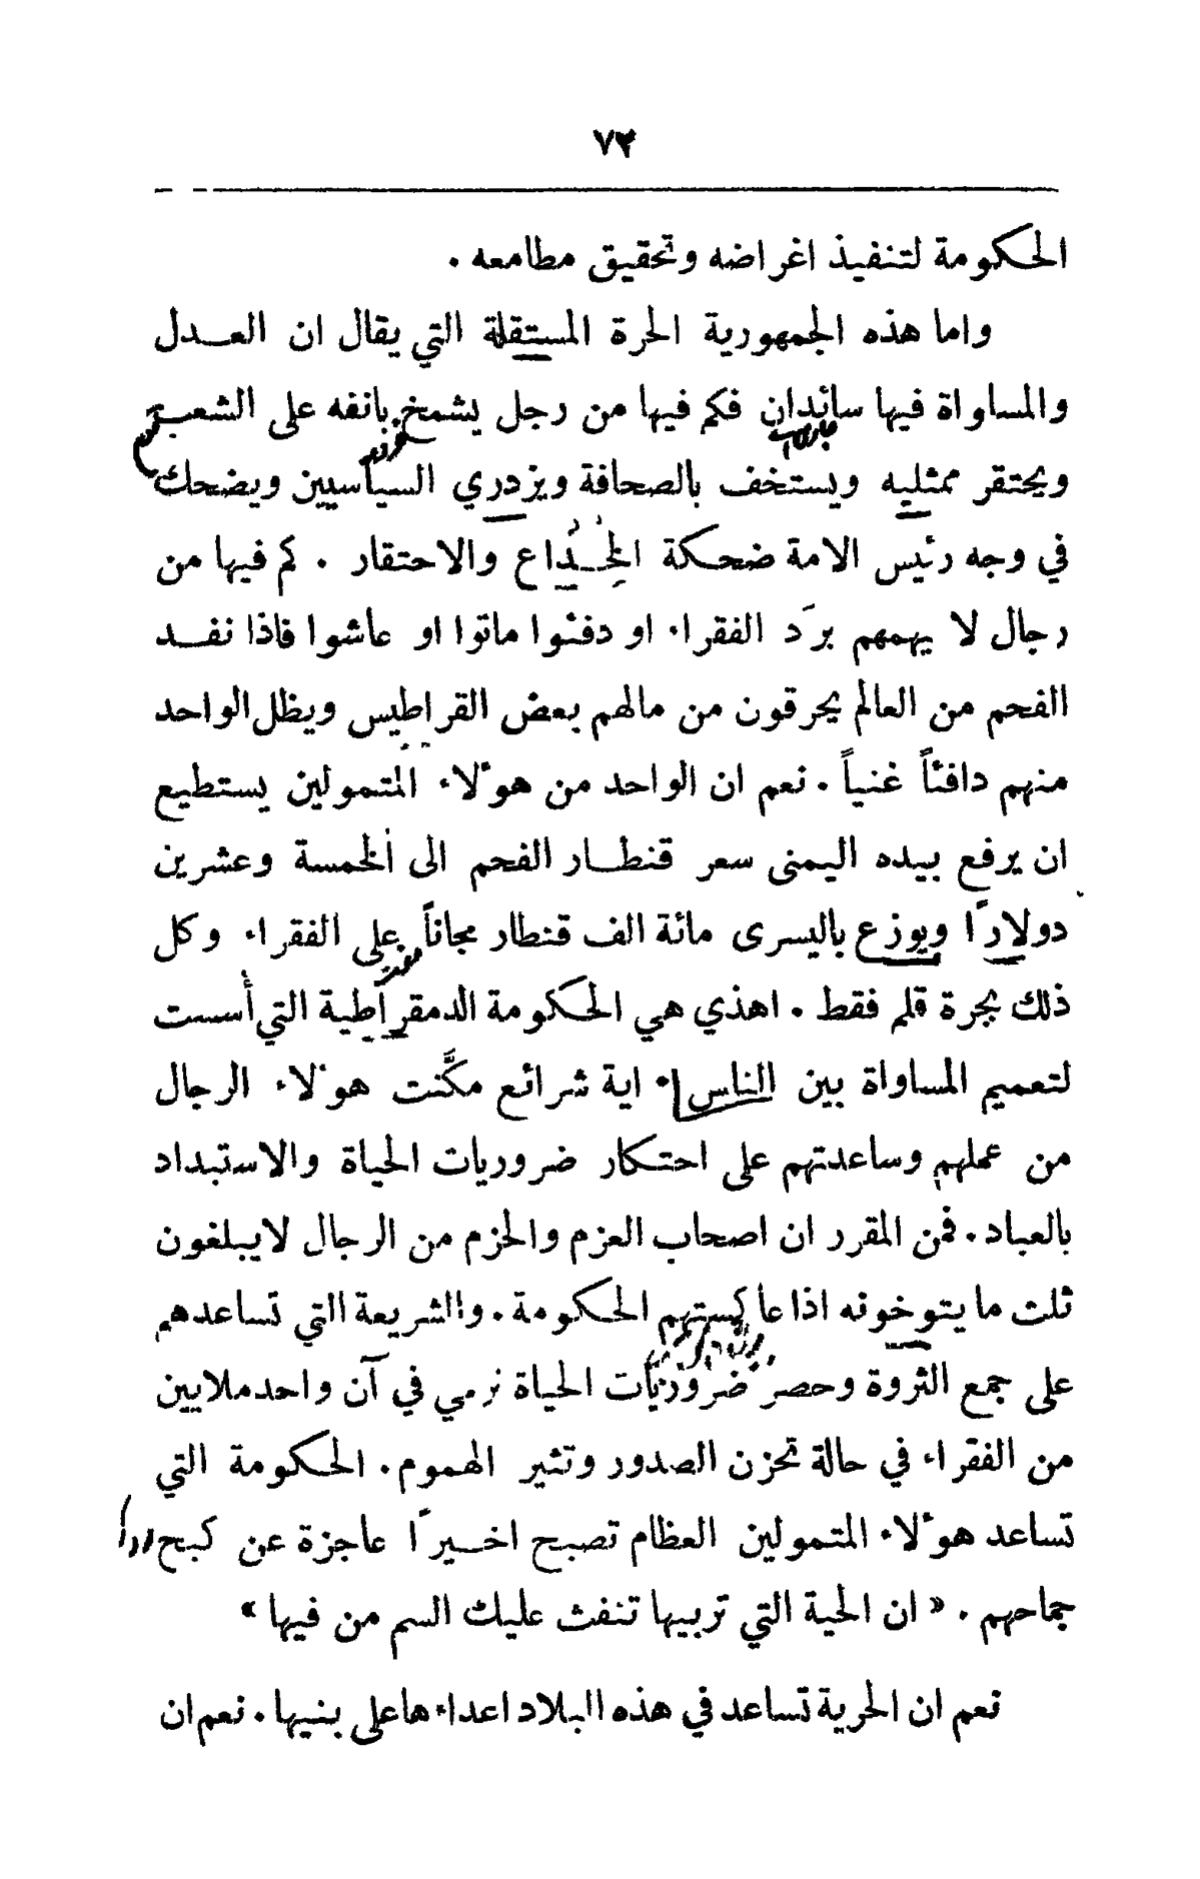 ٧٢
الحكومة لتنفيذ اغراضه وتحقيق مطامعه .
واما هذه الجمهورية الحرة المستقلة التي يقال ان العدل
والمساواة فيها سائدان فكم فيها من رجل يشمخ بانفه على الشعب
ويحتقر ممثليه ويستخف بالصحافة ويزدري السياسيين ويضحك
في وجه رئيس الامة ضحكة الخِدَاع والاحتقار . كم فيها من
رجال لا يهمهم برَد الفقراء او دفئوا ماتوا او عاشوا فاذا نفد
الفحم من العالم يحرقون من مالهم بعض القراطيس ويظل الواحد
منهم دافئاً غنياً . نعم ان الواحد من هوٴلاء المتمولين يستطيع
ان يرفع بيده اليمنى سعر قنطار الفحم الى الخمسة وعشرين
دولارًا ويوزع باليسرى مائة الف قنطار مجاناً على الفقراء وكل
ذلك بجرة قلم فقط . اهذي هي الحكومة الدمقراطية التي أسست
لتعميم المساواة بين الناس . اية شرائع مكَّنت هوٴلاء الرجال
من عملهم وساعدتهم على احتكار ضروريات الحياة والاستبداد
بالعباد . فمن المقرر ان اصحاب العزم والحزم من الرجال لايبلغون
ثلث ما يتوخونه اذا عاكستهم الحكومة . والشريعة التي تساعدهم
على جمع الثروة وحصر ضروريات الحياة نرمي في آن واحد ملايين
من الفقراء في حالة تحزن الصدور وتثير الهموم . الحكومة التي
تساعد هوٴلاء المتمولين العظام تصبح اخيرًا عاجزة عن كبح
جماحهم . « ان الحية التي تربيها تنفث عليك السم من فيها »
نعم ان الحرية تساعد في هذه البلاد اعداءها على بنيها . نعم ان